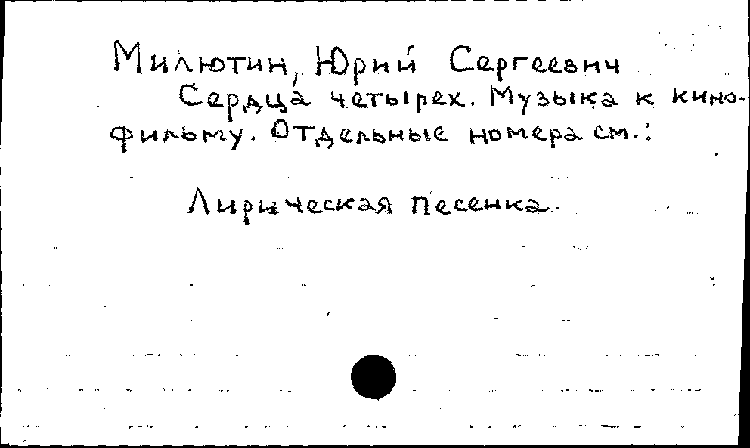 Милютин, Юрий Сергеевич
Сердца четырех. Музыка к кино-
фильму. Отдельные номера см.:
Лирическая песенка.